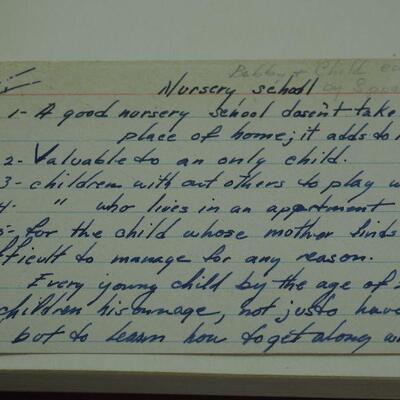 Baby & Child
Nursery school by
1- A good nursery school doesn't take
place of home; it adds to
2- Valuable to an only child.
3- children with out others to play
4- " who lives in an apartment
5- for the child whose mother finds
fficult to manage for any reason.
Every young child by the age of
children his own age, not just to have
but to learn how to get along